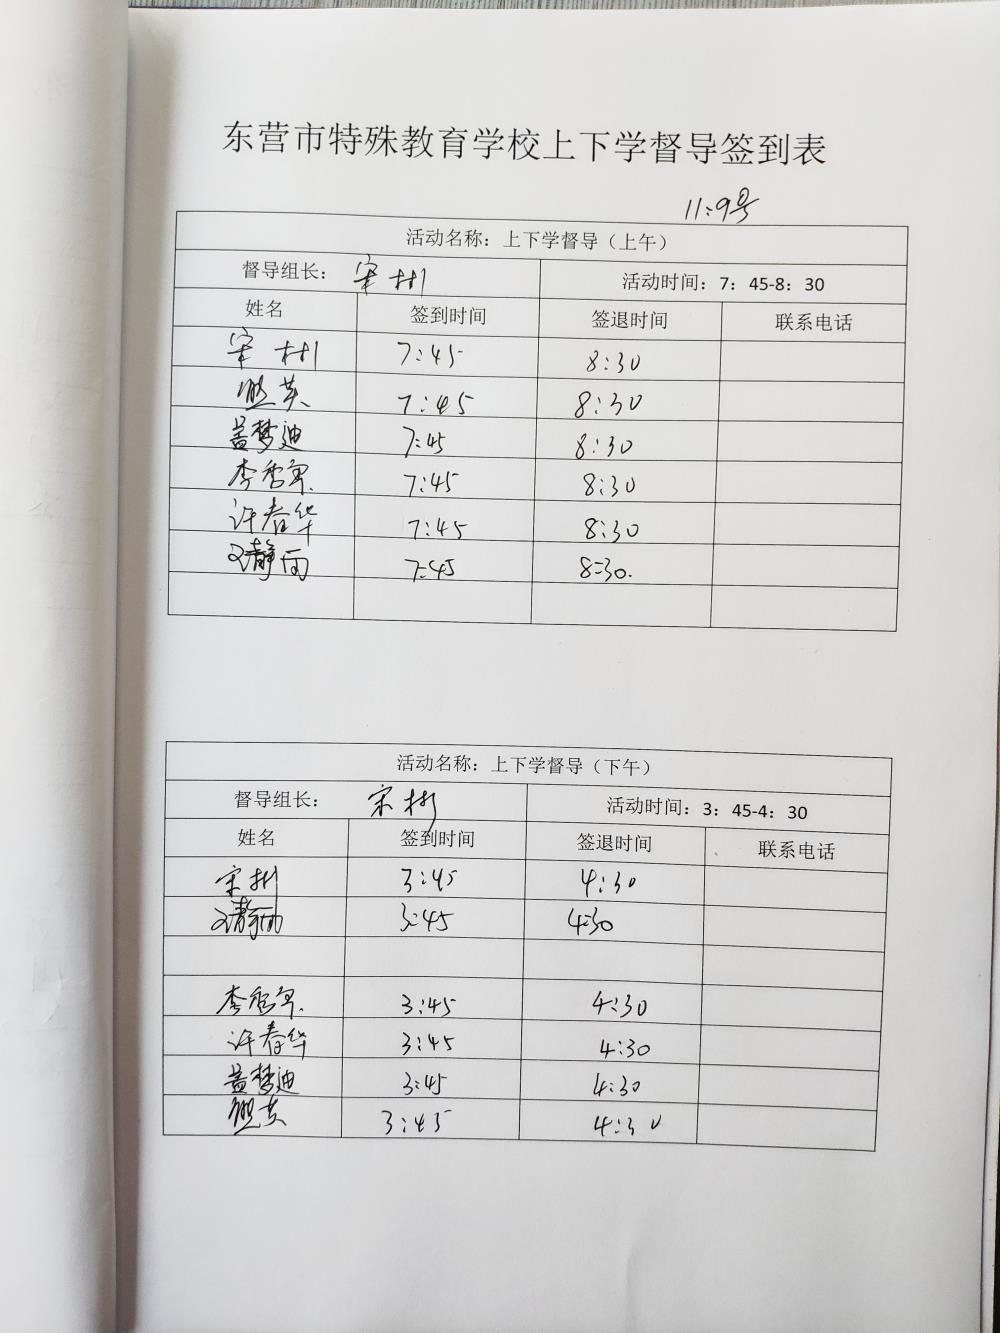 东营市特殊教育学校上下学督导签到表
11:9号
活动名称：上下学督导（上午）
督导组长： 宋彬 活动时间：7：45-8：30
姓名 签到时间 签退时间 联系电话
宋彬 7:45 8:30
熊英 7:45 8:30
盖梦迪 7:45 8:30
李秀军 7:45 8:30
许春华 7:45 8:30
静雨 7:45 8:30.
活动名称：上下学督导（下午）
督导组长： 宋彬 活动时间：3：45-4：30
姓名 签到时间 签退时间 联系电话
宋彬 3:45 4:30
静雨 3:45 4:30
李秀军 3:45 4:30
许春华 3:45 4:30
盖梦迪 3:45 4:30
熊英 3:45 4:30